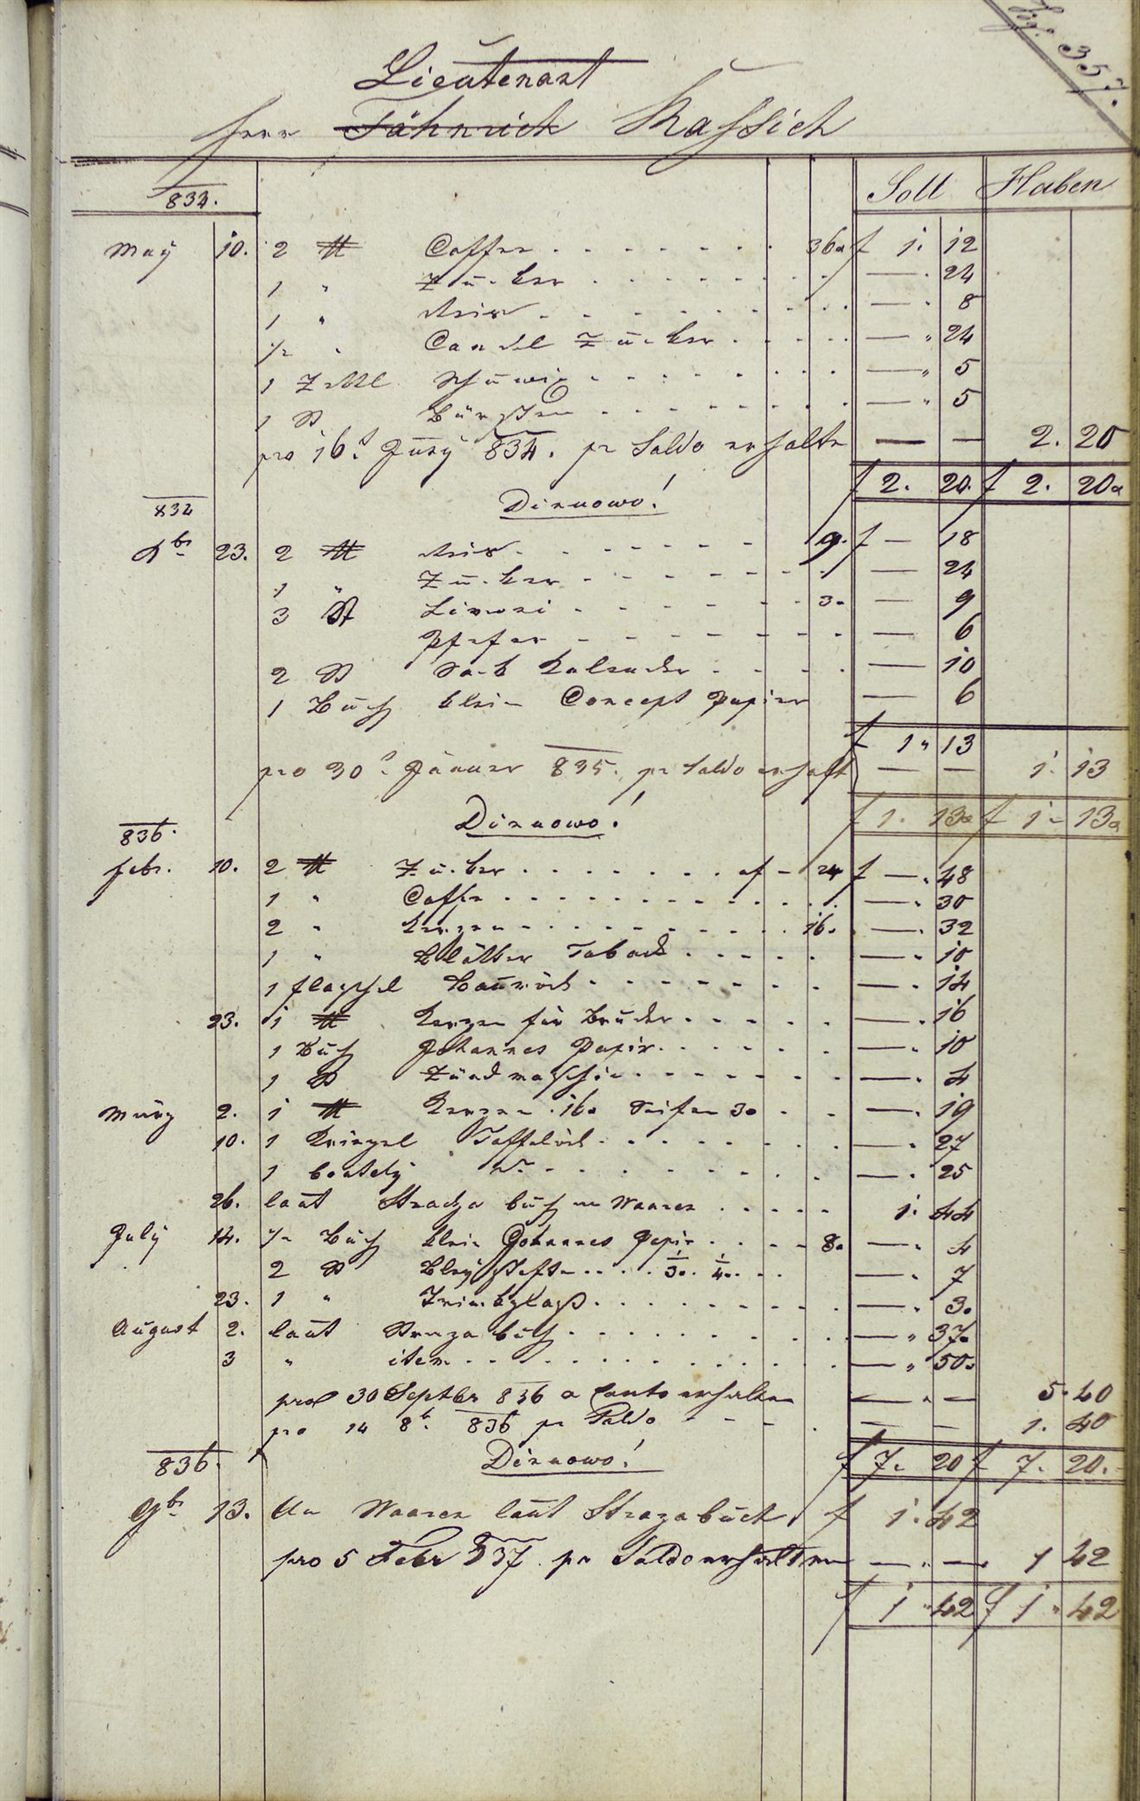 Fol: 357.
Lieutenant
Herr Fähnrich Kassich
Soll Haben
834.
May 10. 2 ℔ Caffee 36 f 1. 12
1 " Zucker — 24
1 " Reis — 8
½ " Candel Zucker — " 24
1 — " 5
1 St Bürsten — " 5
pro 16t Juny 834. pr Saldo erhalte — — 2. 20
f 2. 20. f 2. 20
Dirnowo!
834
Xbr 23. 2 ℔ Reis 9. f — 18
1 " Zucker — 24
3 St Limoni 3 — 9
Pfefer — 6
2 St Sack Kalender — 10
1 Buch klein Concept Papier — 6
f 1 " 13
pro 30t Jänner 835. pr Saldo erhalt — — 1. 13
f 1. 13 f 1 - 13
Dirnowo!
836.
Febr. 10. 2 ℔ Zucker f - 24 f — . 48
1 " Caffe — . 30
2 " Kerzen 16. — . 32
1 " Blätter Taback — . 10
1 Flaschel — . 14
23. 1 ℔ Kerzen für Bruder — . 16
1 Buch Johannes Papir — . 10
1 St Zündmaschin — . 4
März 2. 1 ℔ Kerzen . 16. Seifen 30 — . 19
10. 1 — . 27
1 — . 25
26. laut Strazza buch an Waaren 1. 44
July 14. ½ Buch klein Johannes Papir 8. — . 4
2 St Bleystifte 1/3. 1/4. — . 7
23. 1 " Trinkglass — . 3.
August 2. laut Strazzabuch — " 37.
3 " item — " 50.
pro 30 Septbr 836 a Conto erhalten — " — 5. 40
pro 14 8br. 836 pr Saldo — — 1. 40
f 7. 20 f 7. 20.
Dirnowo!
836.
9br 13. An Waaren laut Strazabuch f 1. 42
pro 5 Febr 837 pr Saldo erhalten — " — 1 42
f 1 " 42 f 1 " 42